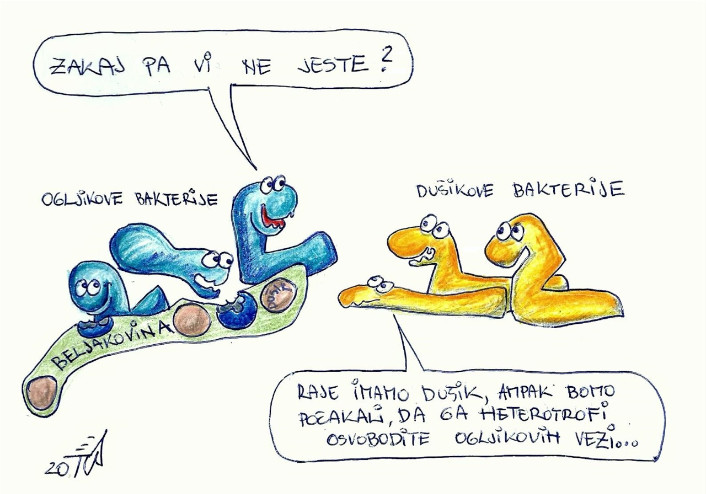 ZAKAJ PA VI NE JESTE?
OGLJIKOVE BAKTERIJE
DUŠIKOVE BAKTERIJE
BELJAKOVINA
RAJE IMAMO DUŠIK, AMPAK BOMO
POČAKALI, DA GA HETEROTROFI
OSVOBODITE OGLJIKOVIH VEZI...
20